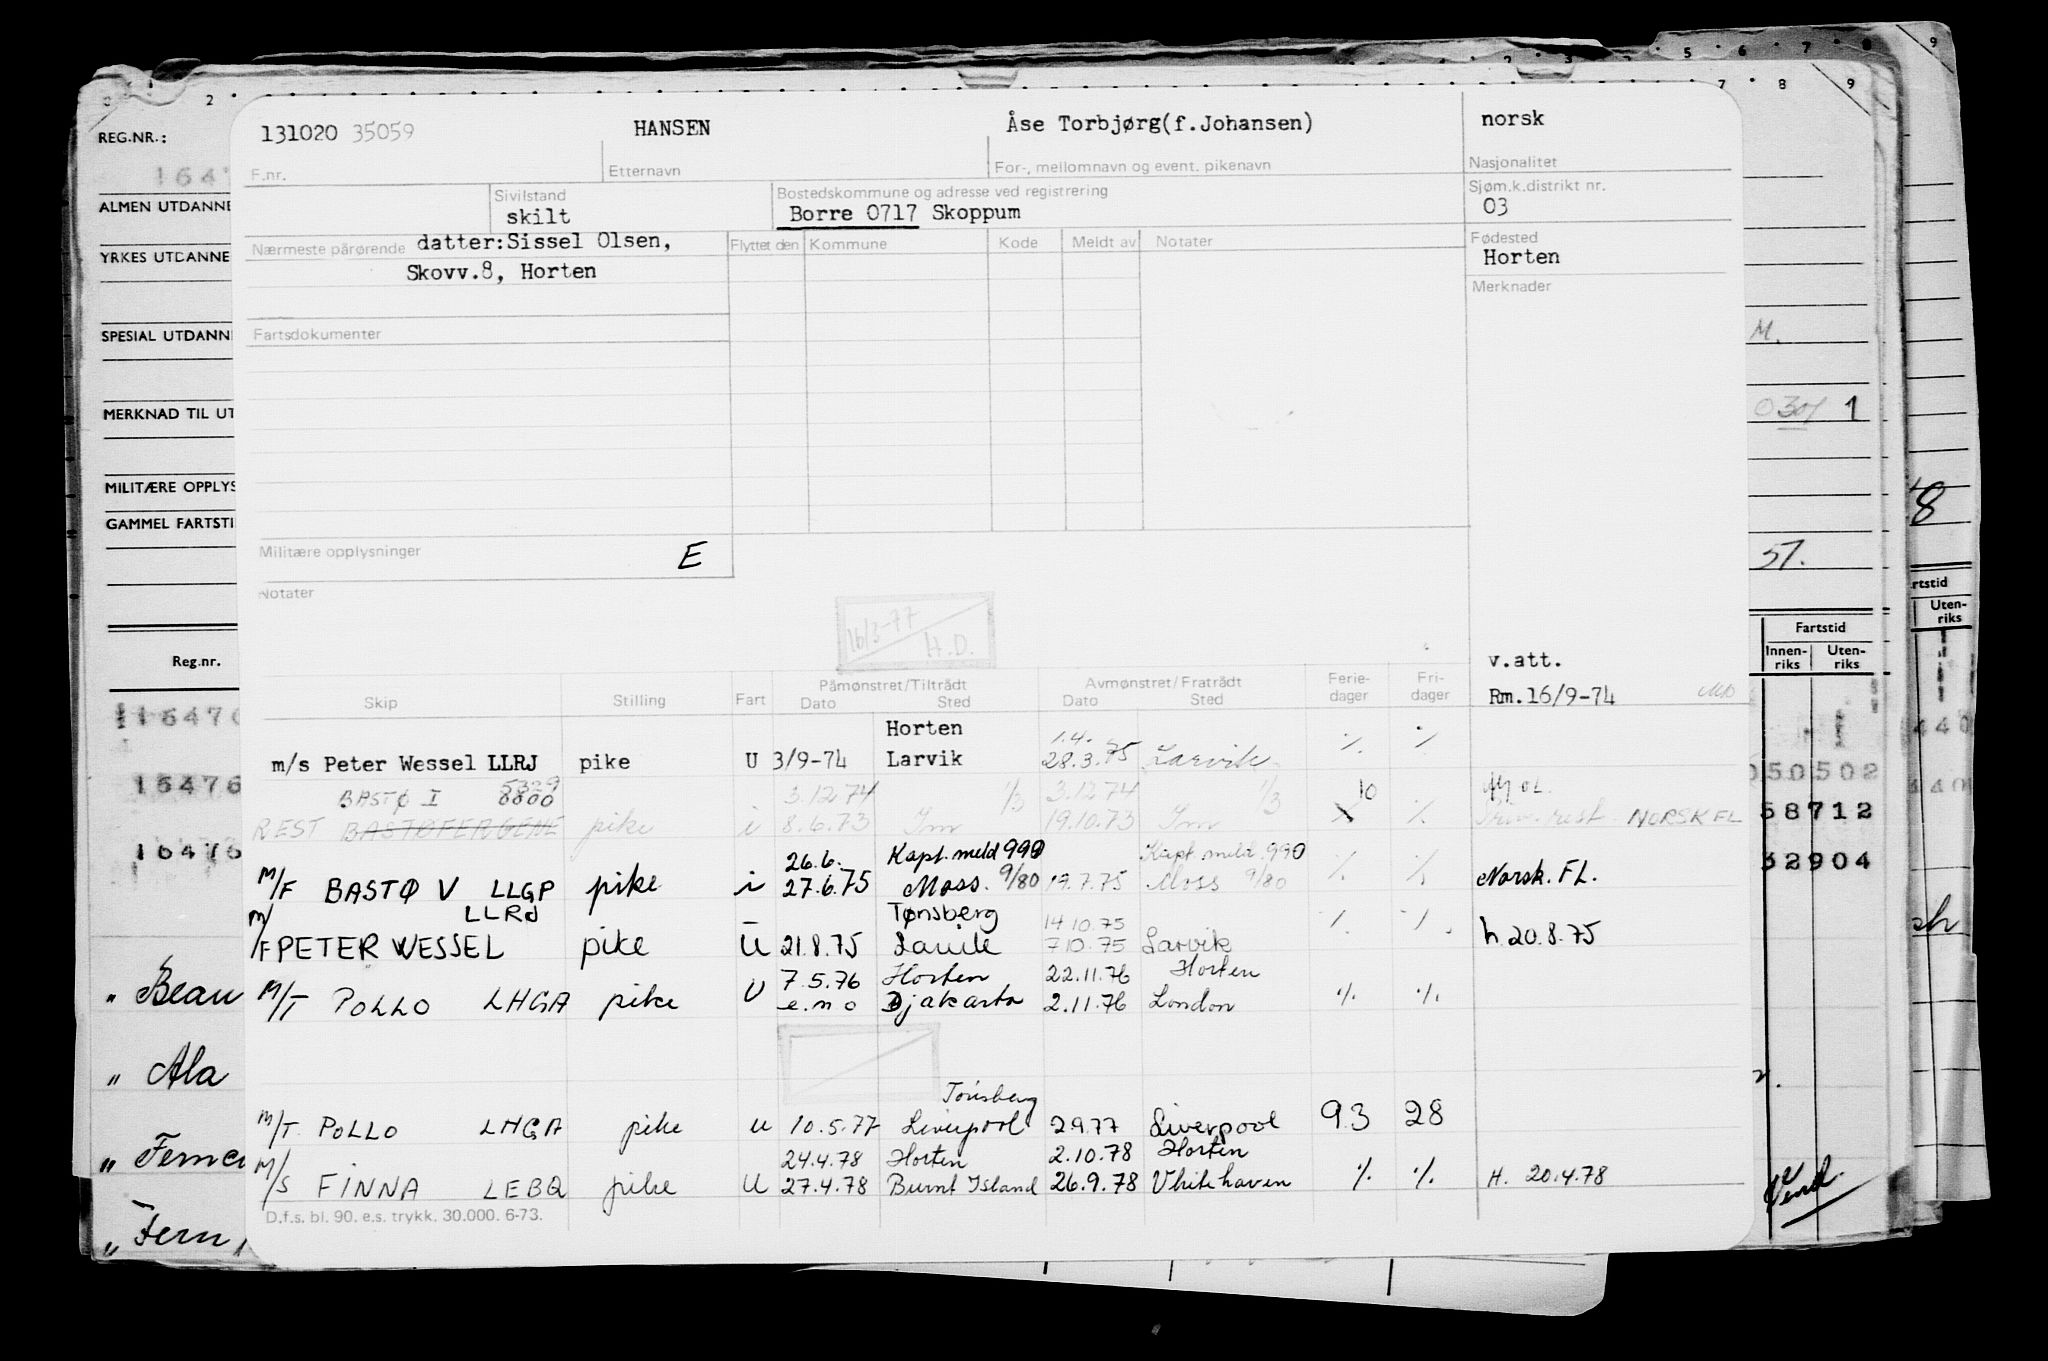 131020 35059 HANSEN Åse Torbjørg(f.Johansen) norsk
F.nr. Etternavn For-, mellomnavn og event. pikenavn Nasjonalitet
Sivilstand Bostedskommune og adresse ved registrering Sjøm.k.distrikt nr.
skilt Borre 0717 Skoppum 03
Nærmeste pårørende datter:Sissel Olsen, Flyttet den Kommune Kode Meldt av Notater Fødested
Skovv.8, Horten Horten
Merknader
Fartsdokumenter
Militære opplysninger E
Notater
16/3-77 H.D.
v.att.
Rm.16/9-74
Skip Stilling Fart Påmønstret/Tiltrådt Avmønstret/Fratrådt Ferie-dager Fri-dager
Dato Sted Dato Sted
Horten 1.4.
m/s Peter Wessel LLRJ pike U 3/9-74 Larvik 28.3.75 Larvik % %
BASTØ I 5329 8800 3.12.74 1/3 3.12.74 1/3 10
REST BASTØFERGENE pike i 8.6.73 19.10.73 % NORSK FL
26.6. Kapt. meld 990 Kapt. meld 990
M/F BASTØ V LLGP pike i 27.6.75 Moss 9/80 19.7.75 Moss 9/80 % % Norsk. FL.
LLRJ Tønsberg 14.10.75
M/F PETER WESSEL pike U 21.8.75 Larvik 7.10.75 Larvik % % h. 20.8.75
7.5.76 Horten 22.11.76 Horten
M/T POLLO LHGA pike U e.m o Djakarta 2.11.76 London % %
Tønsberg
M/T. POLLO LHGA pike u 10.5.77 Liverpool 2.9.77 Liverpool 93 28
24.4.78 Horten 2.10.78 Horten
M/S FINNA LEBQ pike U 27.4.78 Burnt Island 26.9.78 Vhitehaven % % H. 20.4.78
D.f.s. bl. 90. e.s. trykk. 30.000. 6-73.
REG.NR.:
1647
ALMEN UTDANNE
YRKES UTDANNE
SPESIAL UTDANN
MERKNAD TIL UT
MILITÆRE OPPLYS
GAMMEL FARTSTI
Reg.nr.
16470
16476
16476
" Beau
" Ala
" Fernc
" Fern
M.
1
57.
8
Fartstid
Innen-riks Uten-riks
50502
58712
32904
Vend.
rtstid
Uten-riks
440